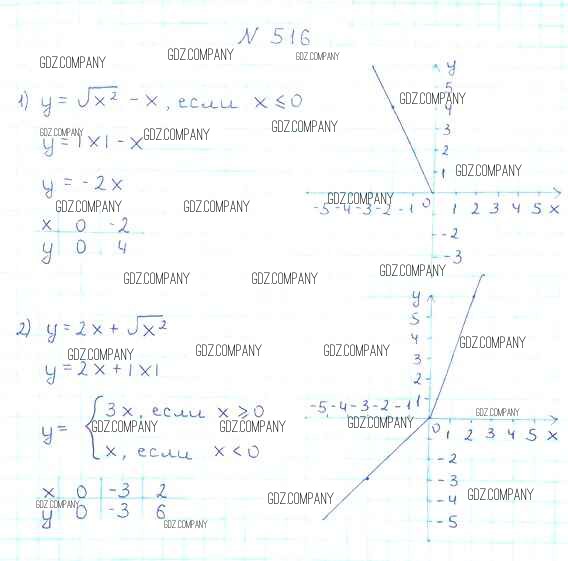 N 516
GDZ.COMPANY GDZ.COMPANY GDZ.COMPANY
1) y = √x² - x, если x ≤ 0
GDZ.COMPANY
y = |x| - x
GDZ.COMPANY GDZ.COMPANY GDZ.COMPANY
y = -2x
GDZ.COMPANY
GDZ.COMPANY GDZ.COMPANY GDZ.COMPANY
x 0 -2
y 0 4
y
5
4
3
2
1
-5 -4 -3 -2 -1 0 1 2 3 4 5 x
-2
-3
GDZ.COMPANY GDZ.COMPANY GDZ.COMPANY
2) y = 2x + √x²
GDZ.COMPANY GDZ.COMPANY GDZ.COMPANY GDZ.COMPANY
y = 2x + |x|
y = { 3x, если x ≥ 0
GDZ.COMPANY GDZ.COMPANY GDZ.COMPANY GDZ.COMPANY
x, если x < 0
x 0 -3 2
GDZ.COMPANY GDZ.COMPANY GDZ.COMPANY
y 0 -3 6
GDZ.COMPANY
y
5
4
3
2
1
-5 -4 -3 -2 -1 0 1 2 3 4 5 x
-2
-3
-4
-5